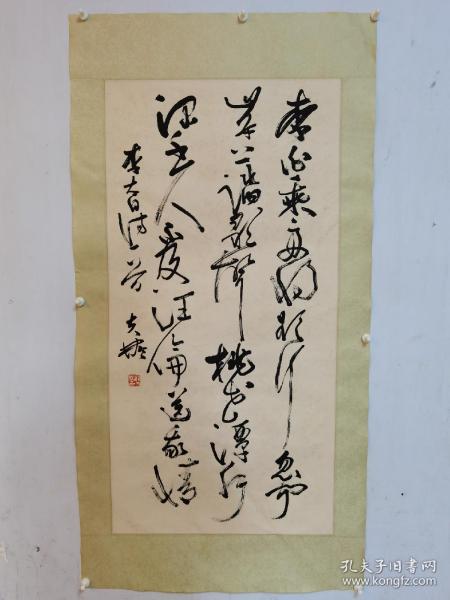 李白乘舟将欲行忽聞
岸上踏歌聲桃花潭水
深千尺不及汪倫送我情
李太白诗
孔夫子旧书网
www.kongfz.com